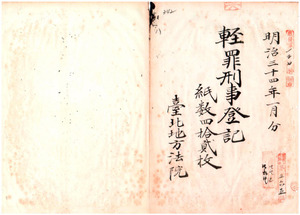 明治三十四年一月分
軽罪刑事登記
紙数四拾貳枚
臺北地方法院